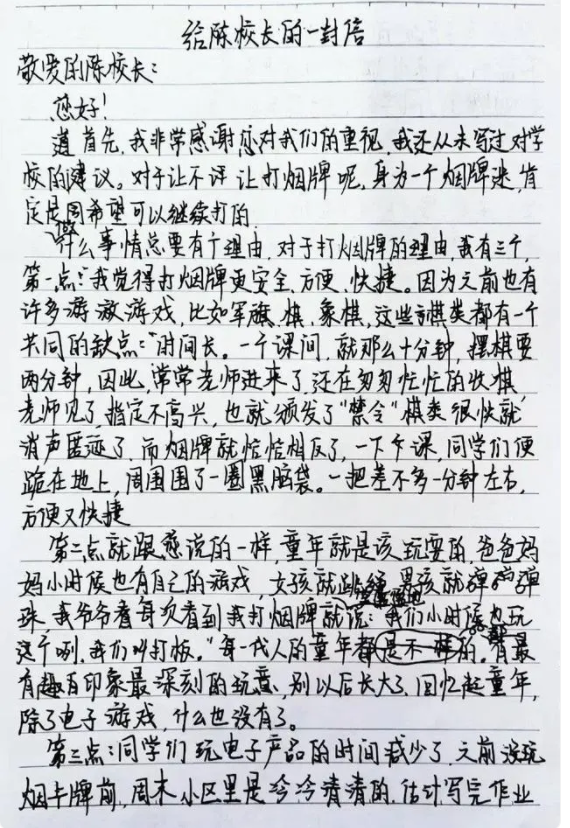 给陈校长的一封信
敬爱的陈校长:
您好!
首先,我非常感谢您对我们的重视,我还从未写过对学
校的建议。对于让不让打烟牌呢,身为一个烟牌迷,肯
定是希望可以继续打的
什么事情总要有个理由,对于打烟牌的理由,我有三个,
第一点:我觉得打烟牌更安全、方便、快捷。因为之前也有
许多游戏,比如军旗、棋、象棋,这些棋类都有一个
共同的缺点:"时间长。一个课间,就那么十分钟,摆棋要
两分钟,因此,常常老师进来了,还在匆匆忙忙的收棋
老师见了,指定不高兴,也就颁发了"禁令"棋类很快就
消声匿迹了,而烟牌就恰恰相反了,一下个课,同学们便
跪在地上,周围围了一圈黑脑袋。一把差不多一分钟左右,
方便又快捷
第二点就跟您说的一样,童年就是该玩耍的,爸爸妈
妈小时候也有自己的游戏,女孩就跳绳,男孩就弹弹
珠,我爷爷每次看到我打烟牌就说:"我们小时候也玩
这个咧,我们叫打板。"每一代人的童年都是不一样的。有最
有趣有印象最深刻的玩意,别以后长大了,回忆起童年,
除了电子游戏,什么也没有了。
第三点:同学们玩电子产品的时间减少了,之前没玩
烟卡牌前,周末小区里是冷冷清清的,估计写完作业